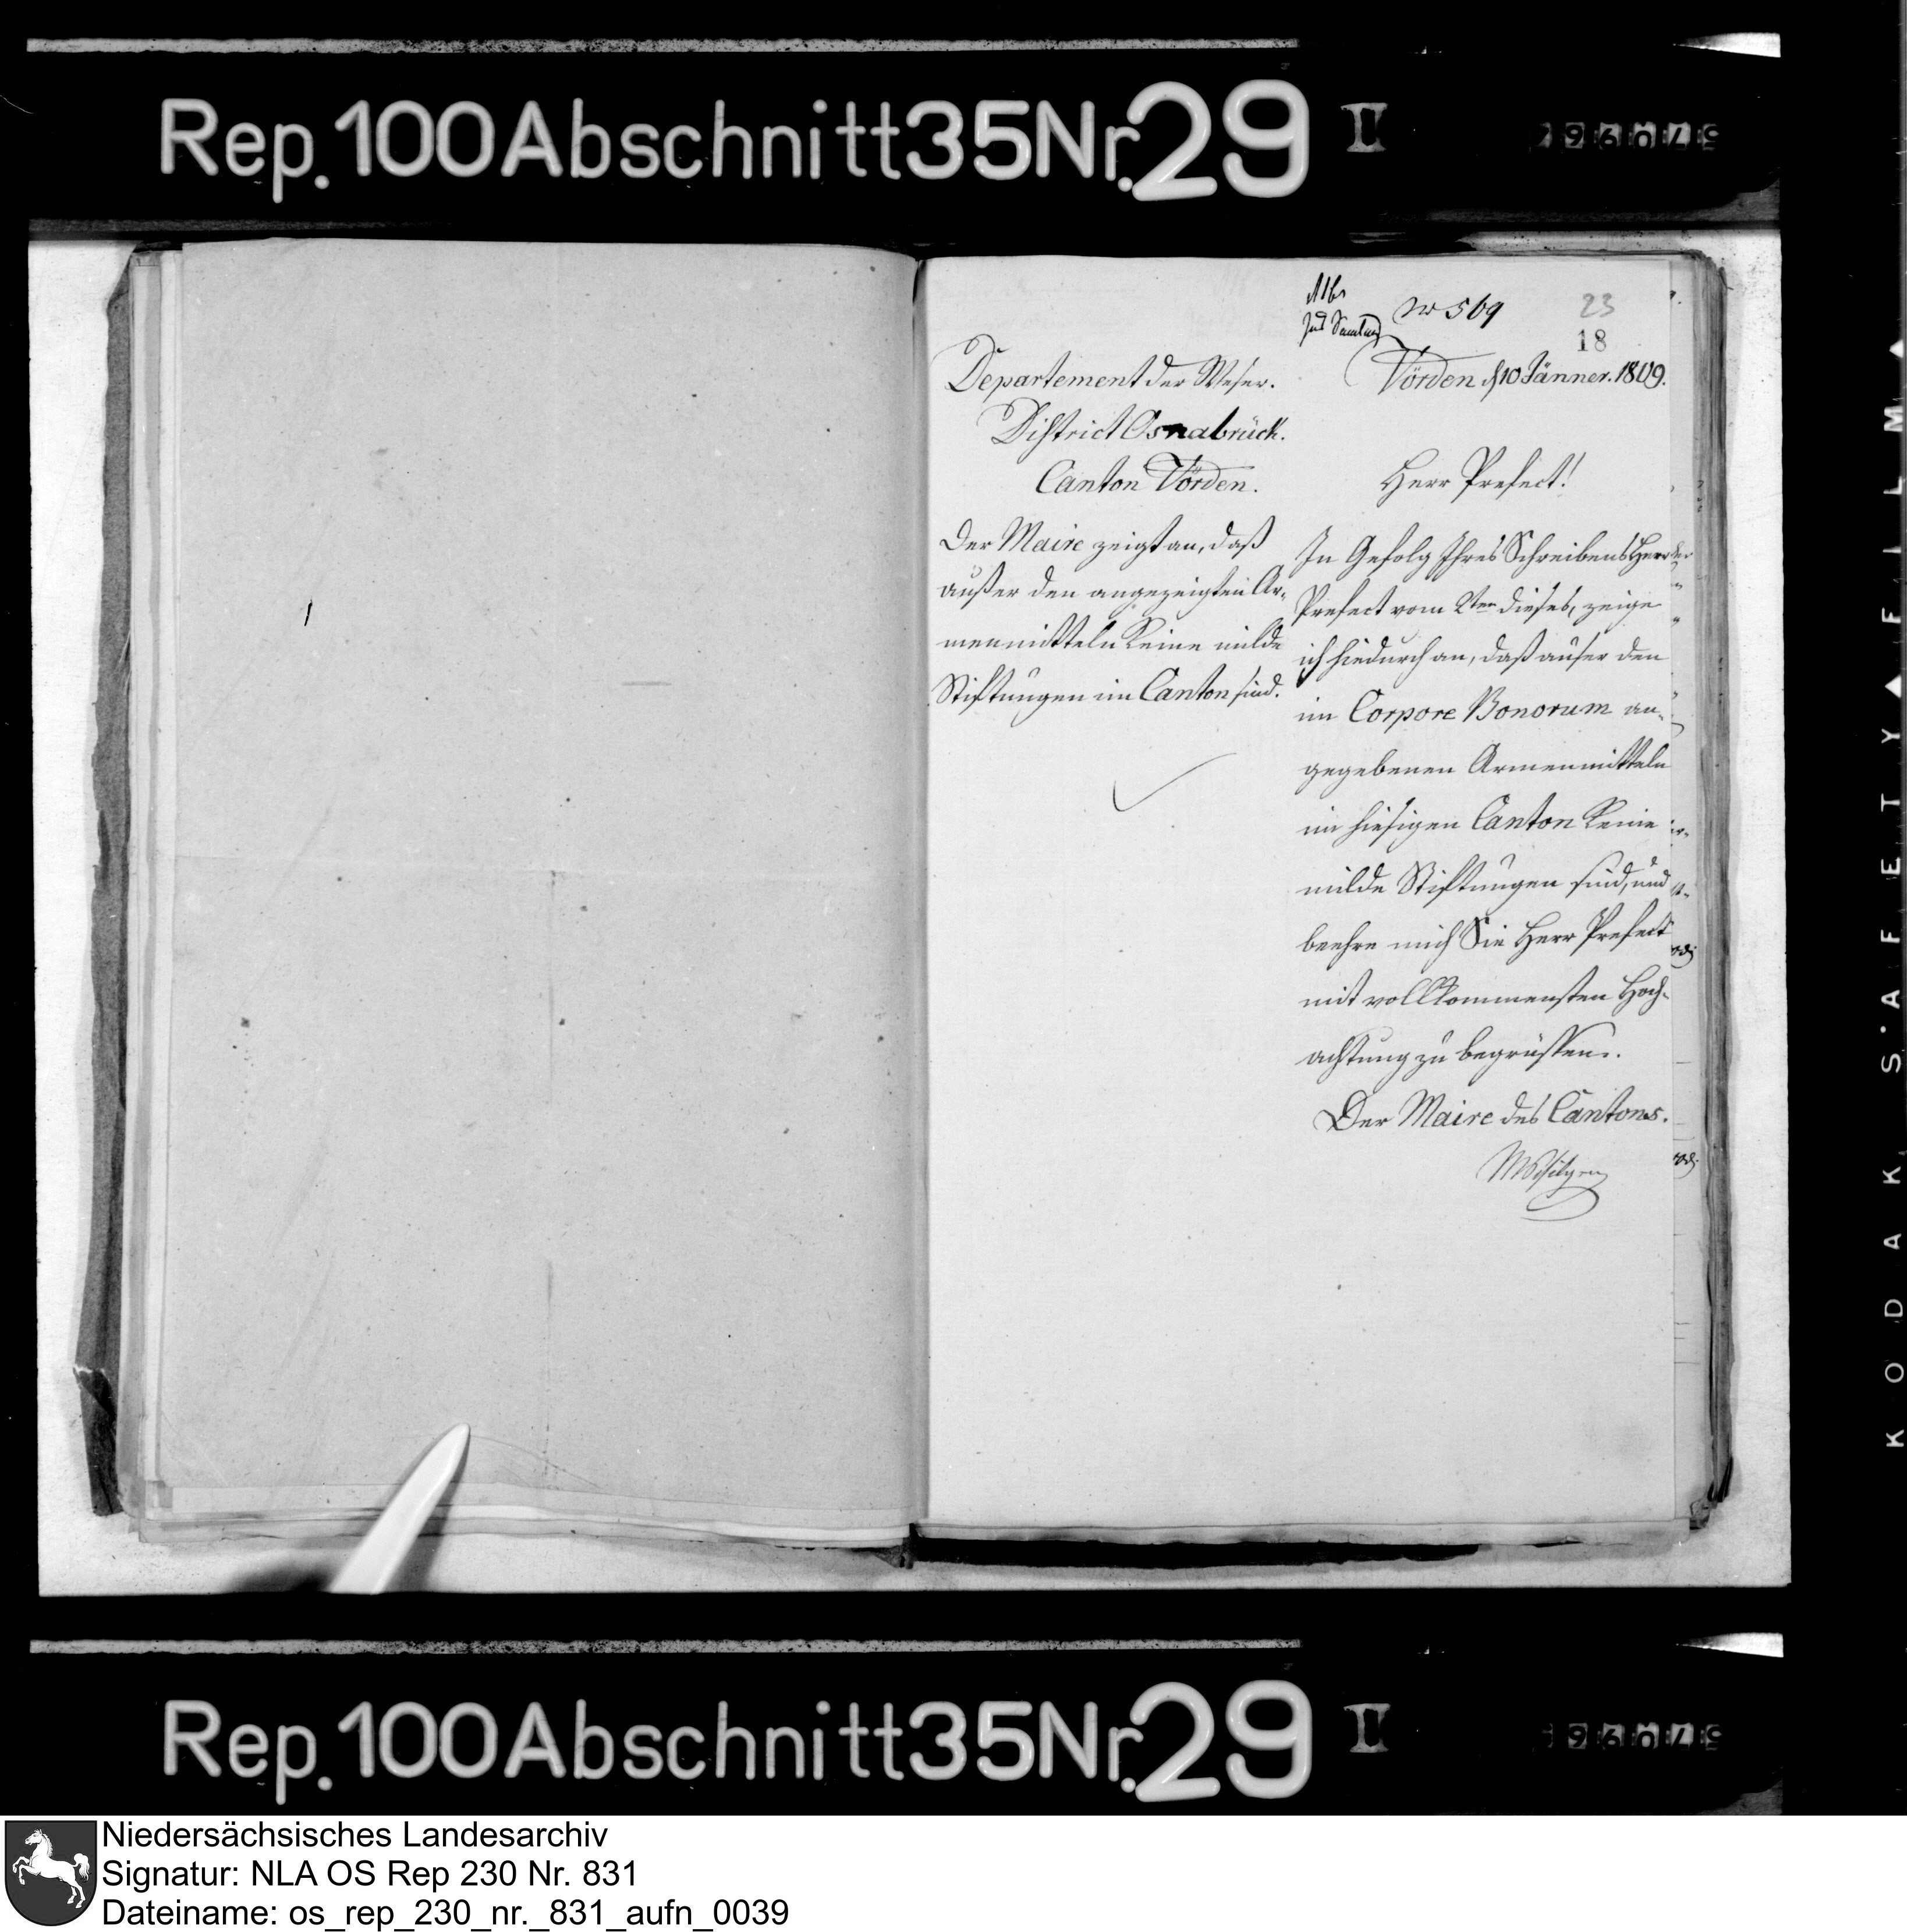 Rep. 100 Abschnitt 35 Nr. 29 II
№ 569
23
18
Departement der Weser.
District Osnabrück.
Canton Vörden.
Der Maire zeigt an, daß
außer den angezeigten Ar-
menmitteln keine milde
Stiftungen im Canton sind.
Vörden d 10 Jänner. 1809.
Herr Prefect!
In Gefolg Ihres Schreibens Herr
Prefect vom 2ten dieses, zeige
ich hiedurch an, daß auser den
im Corpore Bonorum an-
gegebenen Armenmitteln
im hiesigen Canton keine
milde Stiftungen sind, und
beehre mich Sie Herr Prefect
mit vollkommensten Hoch-
achtung zu begrüssen.
Der Maire des Cantons.
Rep. 100 Abschnitt 35 Nr. 29 II
KODAK SAFETY FILM
Niedersächsisches Landesarchiv
Signatur: NLA OS Rep 230 Nr. 831
Dateiname: os_rep_230_nr._831_aufn_0039